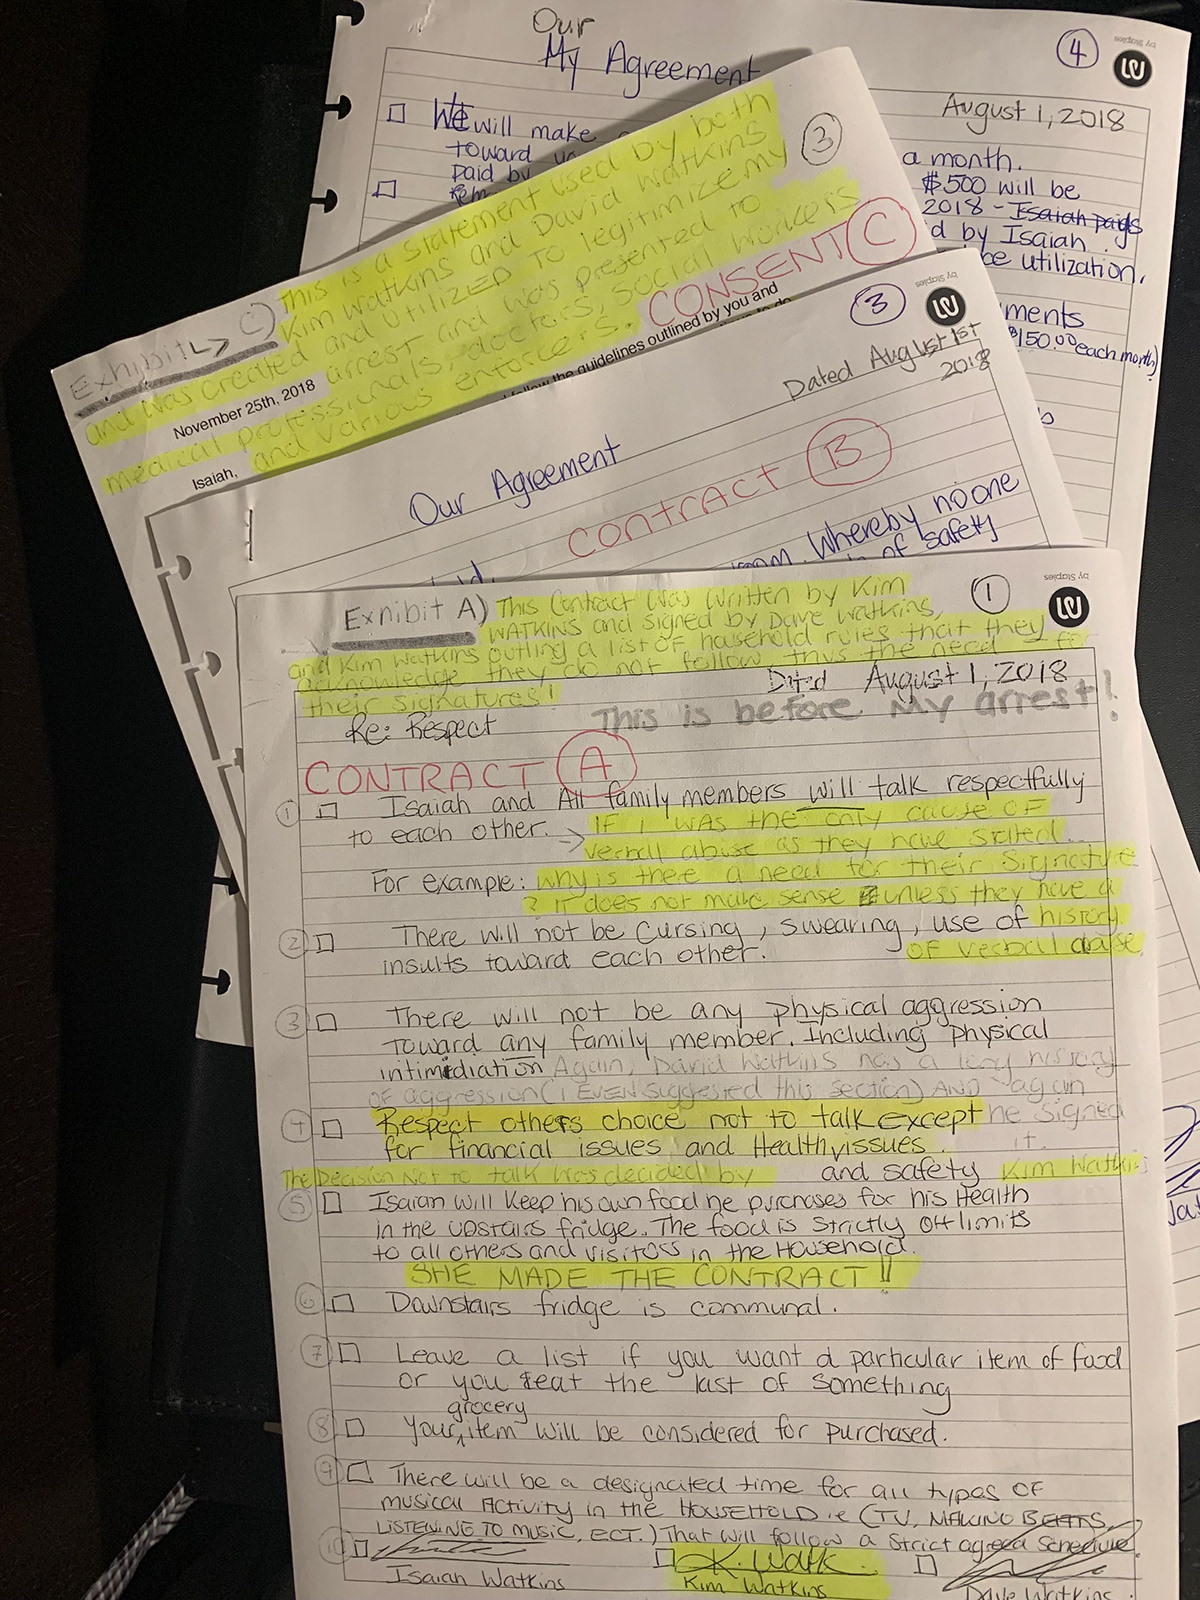 Our
My Agreement
4
by Staples
August 1, 2018
We will make
toward
paid by
a month.
$500 will be
2018 - Isaiah pays
d by Isaiah.
be utilization.
ments
$150.00 each month)
Exhibit C)
This is a statement used by both
Kim Watkins and David Watkins
and was created and UTILIZED TO legitimize my
arrest and was presented to
medical professionals, doctors, social workers
and various enforcers.
3
CONSENT C
November 25th, 2018
follow the guidelines outlined by you and
Isaiah,
3
by Staples
Dated August 1st
2018
Our Agreement
CONTRACT B
Whereby no one
of safety
1
by Staples
Exhibit A) This Contract Was Written by Kim
WATKINS and signed by Dave Watkins,
and Kim Watkins outling a list of household rules that they
acknowledge they do not follow thus the need for
their signatures!
Dated August 1, 2018
Re: Respect
This is before My arrest!
CONTRACT A
1 Isaiah and All family members will talk respectfully
to each other. → IF I was the only cause OF
verbal abuse as they have stated.
For example: Why is there a need for their Signature
? IT does not make sense unless they have a
2 There will not be cursing, swearing, use of history
insults toward each other. OF verbal abuse
3 There will not be any physical aggression
toward any family member. Including physical
intimidiation Again, David Watkins has a long history
OF aggression (I EVEN suggested this section) AND again
4 Respect others choice not to talk except he signed
for financial issues and Health issues. it.
The Decision Not to talk was decided by and safety Kim Watkins
5 Isaiah will keep his own food he purchases for his Health
in the upstairs fridge. The food is strictly off limits
to all others and visitors in the Household.
SHE MADE THE CONTRACT!!
6 Downstairs fridge is communal.
7 Leave a list if you want a particular item of food
or you eat the last of something
grocery
8 Your item will be considered for purchased.
9 There will be a designated time for all types OF
musical Activity in the HOUSEHOLD ie (TV, MAKING BEATS,
LISTENING TO MUSIC, ECT.) That will follow a strict agreed schedule.
10 K. Watk
Isaiah Watkins Kim Watkins Dave Watkins